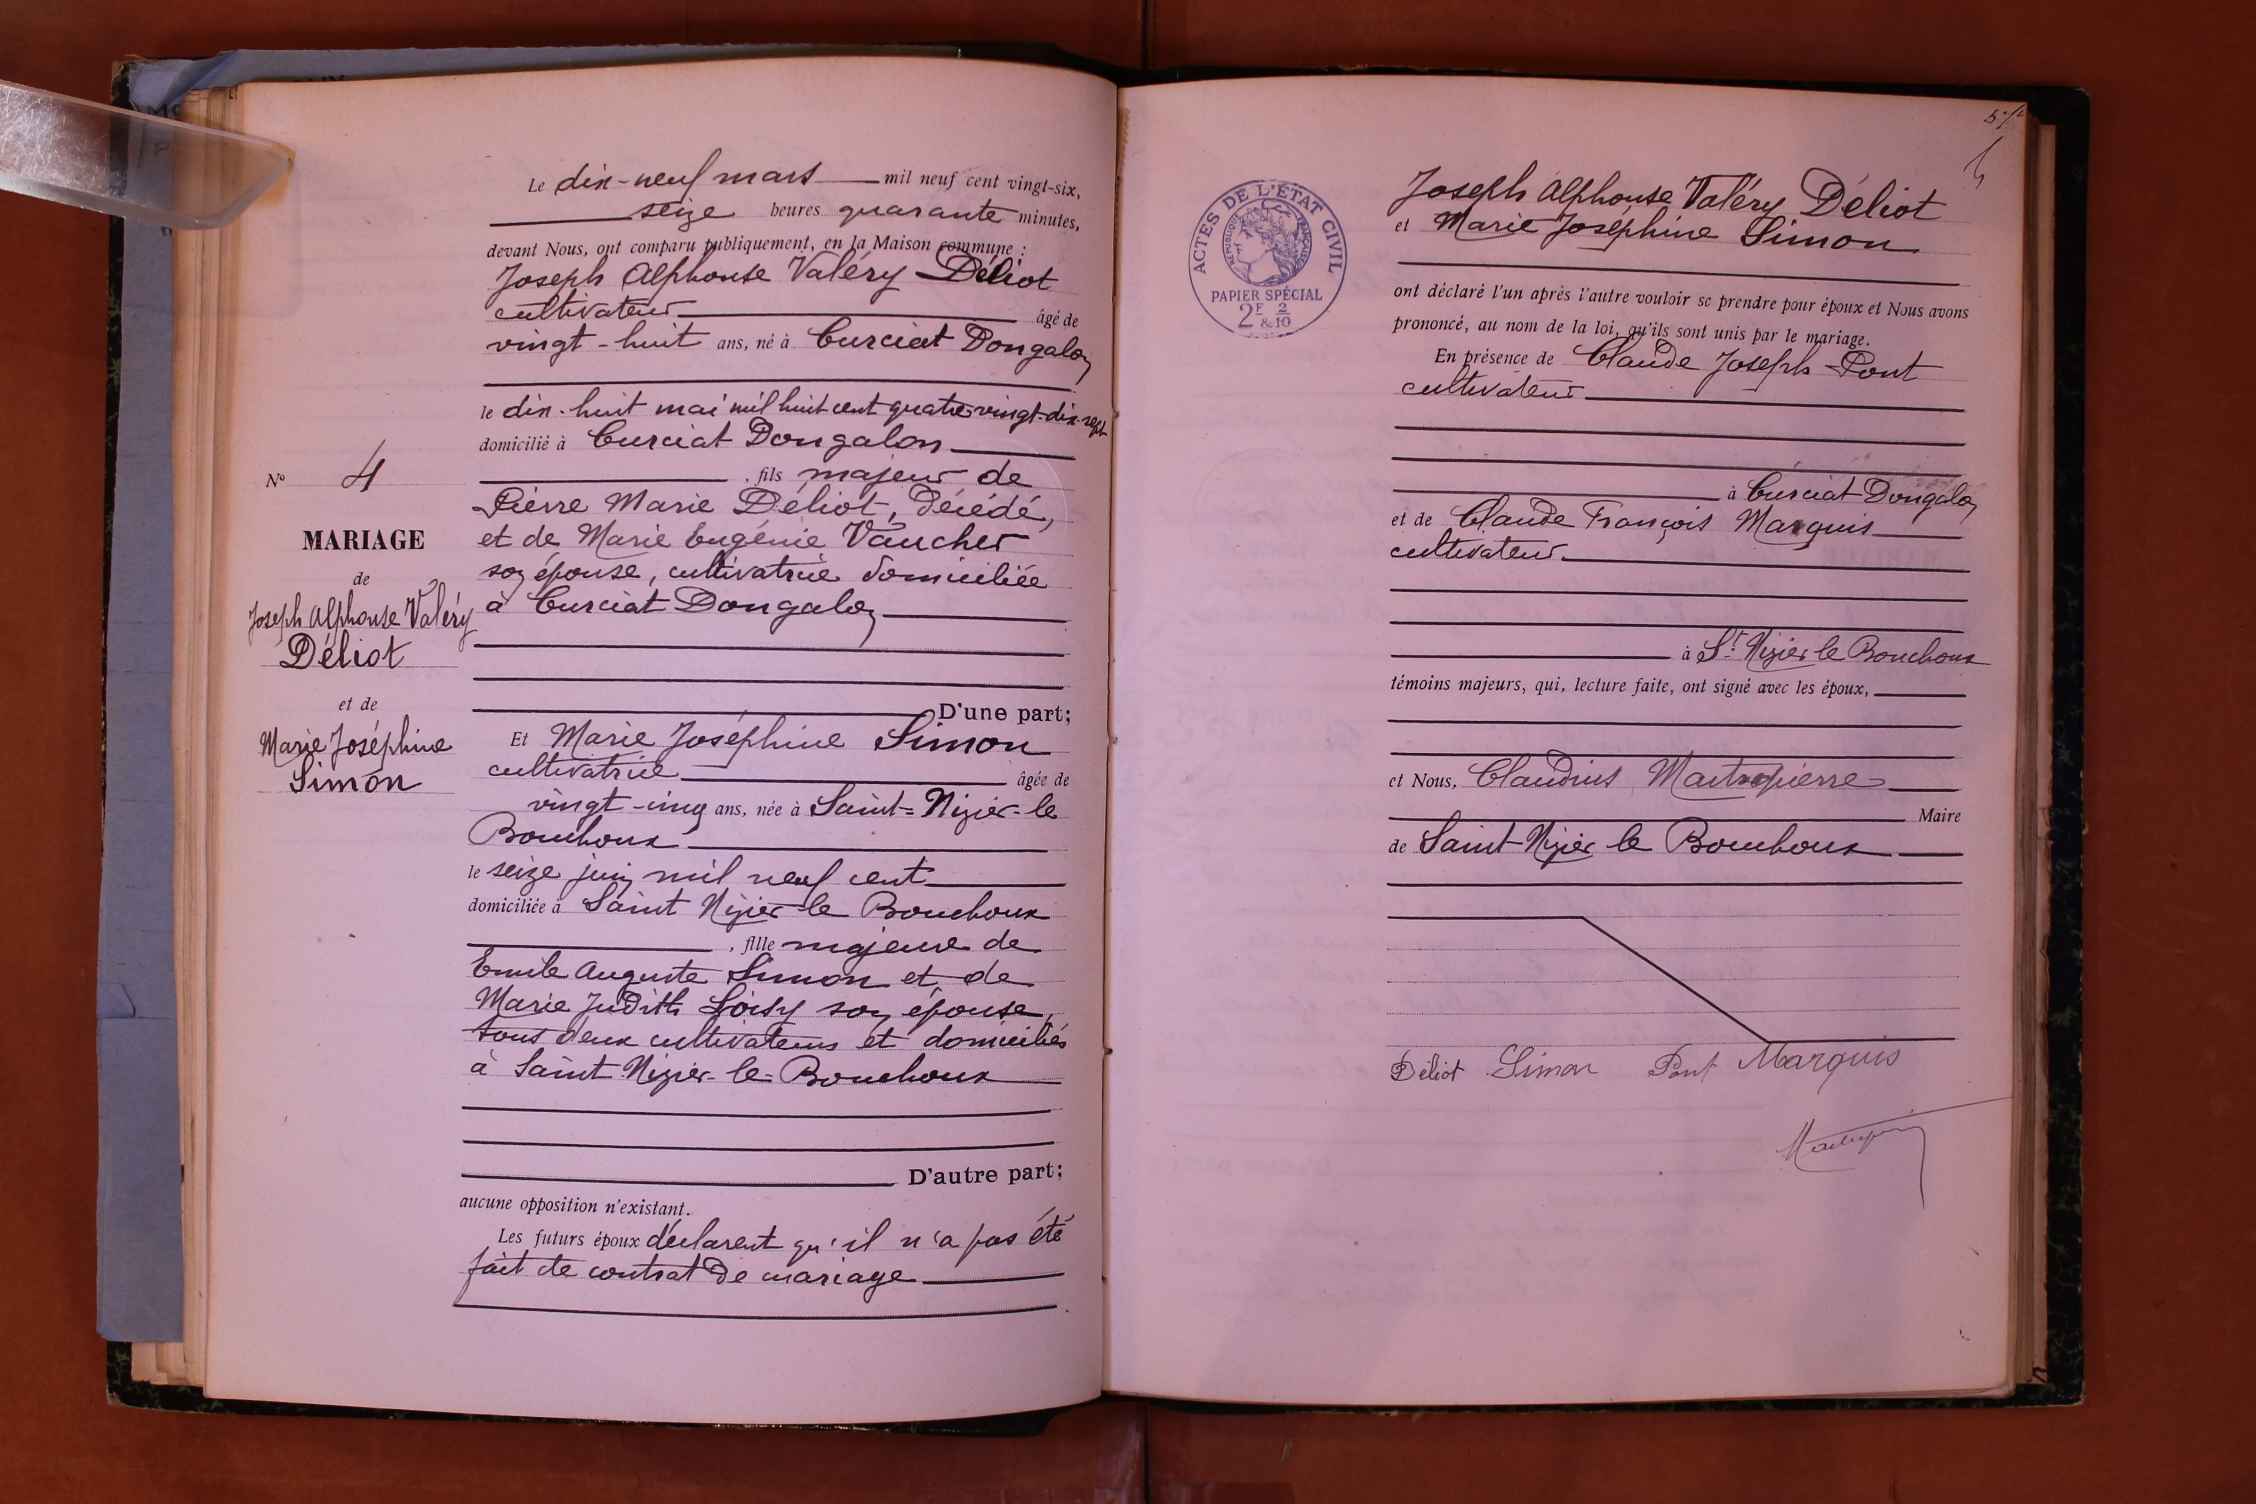 Le dix-neuf mars mil neuf cent vingt-six,
seize heures quarante minutes,
devant Nous, ont comparu publiquement, en la Maison commune :
Joseph Alphonse Valéry Déliot
cultivateur âgé de
vingt-huit ans, né à Curciat Dongalon
le dix-huit mai mil huit cent quatre vingt-dix-sept
domicilié à Curciat Dongalon
, fils majeur de
Pierre Marie Déliot, décédé,
et de Marie Eugénie Vaucher
son épouse, cultivatrice domiciliée
à Curciat Dongalon
D'une part;
Et Marie Joséphine Simon
cultivatrice âgée de
vingt-cinq ans, née à Saint-Nizier-le
Bouchoux
le seize juin mil neuf cent
domiciliée à Saint Nizier-le Bouchoux
, fille majeure de
Emile Auguste Simon et de
Marie Judith Loisy son épouse,
tous deux cultivateurs et domiciliés
à Saint Nizier-le-Bouchoux
D'autre part;
aucune opposition n'existant.
Les futurs époux déclarent qu'il n'a pas été
fait de contrat de mariage
No 4
MARIAGE
de
Joseph Alphonse Valéry
Déliot
et de
Marie Joséphine
Simon
ACTES DE L'ÉTAT CIVIL
RÉPUBLIQUE FRANÇAISE
PAPIER SPÉCIAL
2F & 2/10
Joseph Alphonse Valéry Déliot
et Marie Joséphine Simon
ont déclaré l'un après l'autre vouloir se prendre pour époux et Nous avons
prononcé, au nom de la loi, qu'ils sont unis par le mariage.
En présence de Claude Joseph Pont
cultivateur
à Curciat Dongalon
et de Claude François Marquis
cultivateur
à St Nizier le Bouchoux
témoins majeurs, qui, lecture faite, ont signé avec les époux,
et Nous, Claudius Maitrepierre
Maire
de Saint-Nizier le Bouchoux
Déliot Simon Pont Marquis